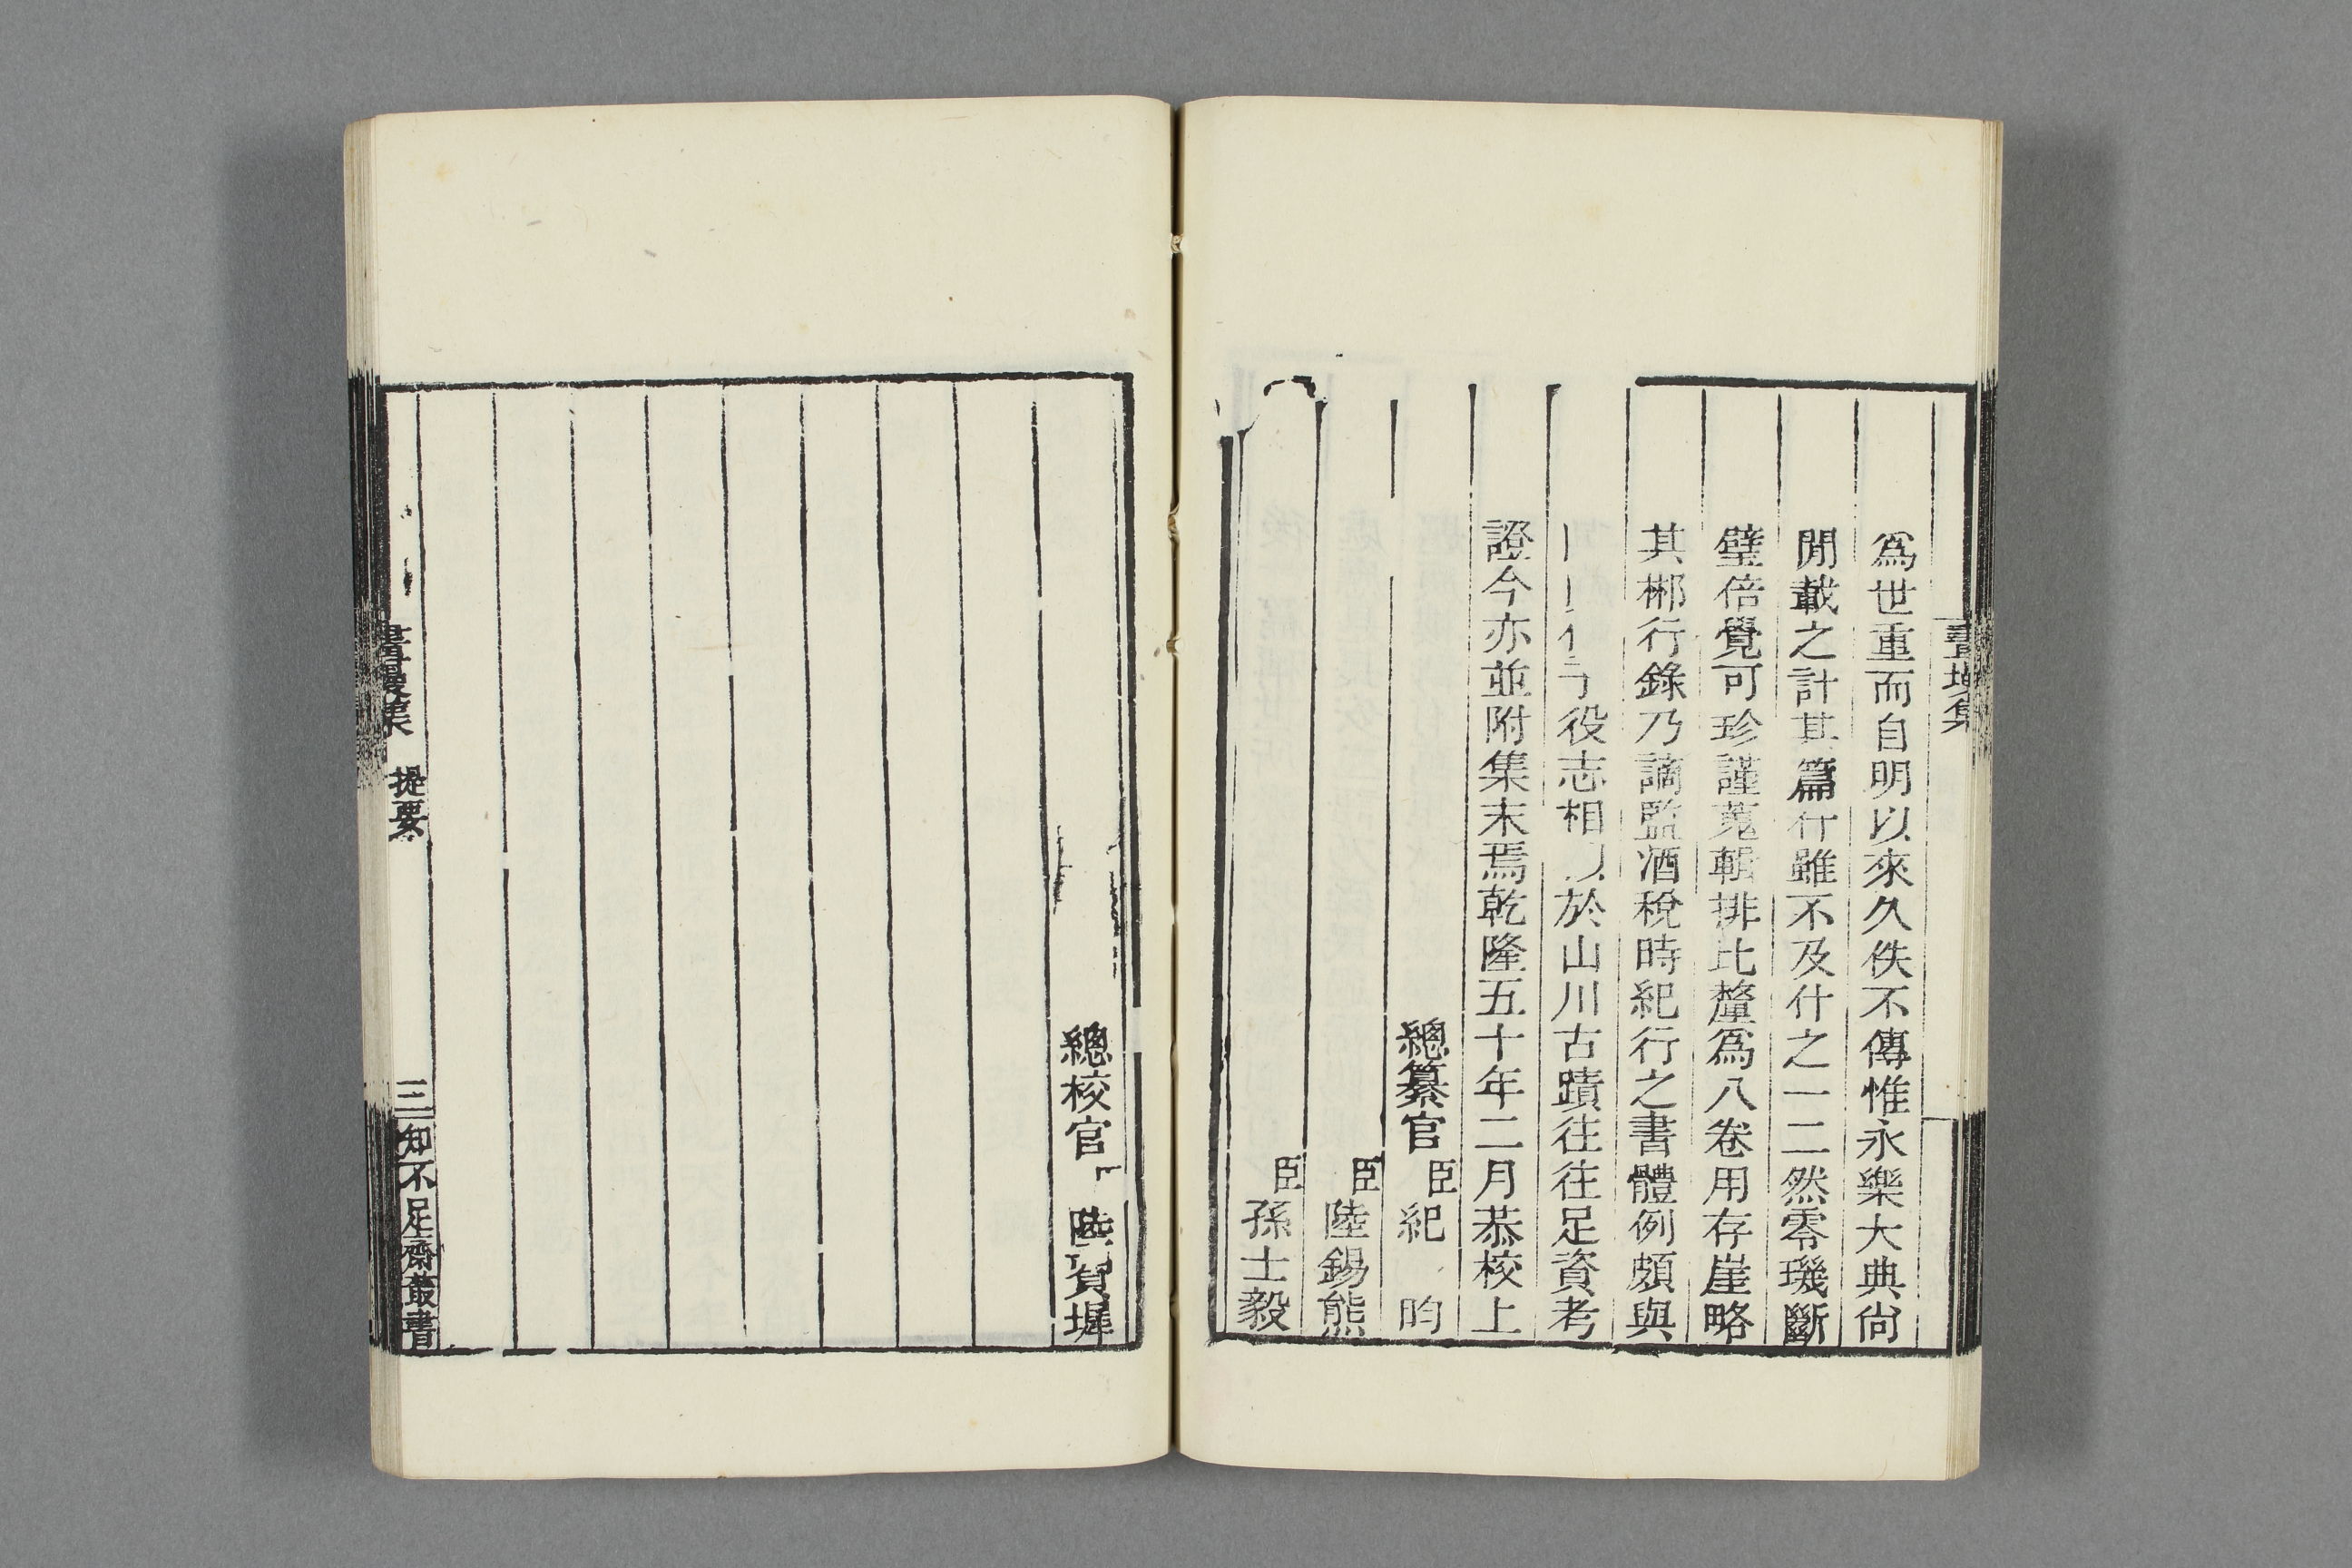 為世重而自明以來久佚不傳惟永樂大典尙
閒載之計其篇行雖不及什之一二然零璣斷
璧倍覺可珍謹蒐輯排比釐為八卷用存崖略
其郴行錄乃謫監酒稅時紀行之書體例頗與
役志相於山川古蹟往往足資考
證今亦並附集末焉乾隆五十年二月恭校上
總纂官臣紀昀
臣陸錫熊
臣孫士毅
畫墁集
總校官陸費墀
畫墁集 提要 三 知不足齋叢書